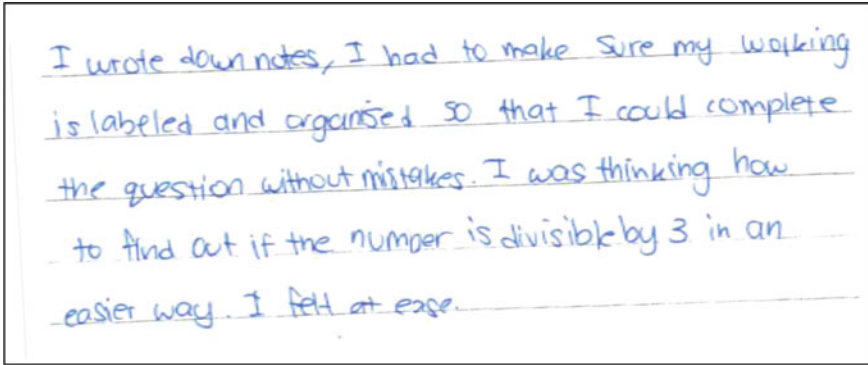 I wrote down notes, I had to make sure my working
is labeled and organised so that I could complete
the question without mistakes. I was thinking how
to find out if the number is divisible by 3 in an
easier way. I felt at ease.